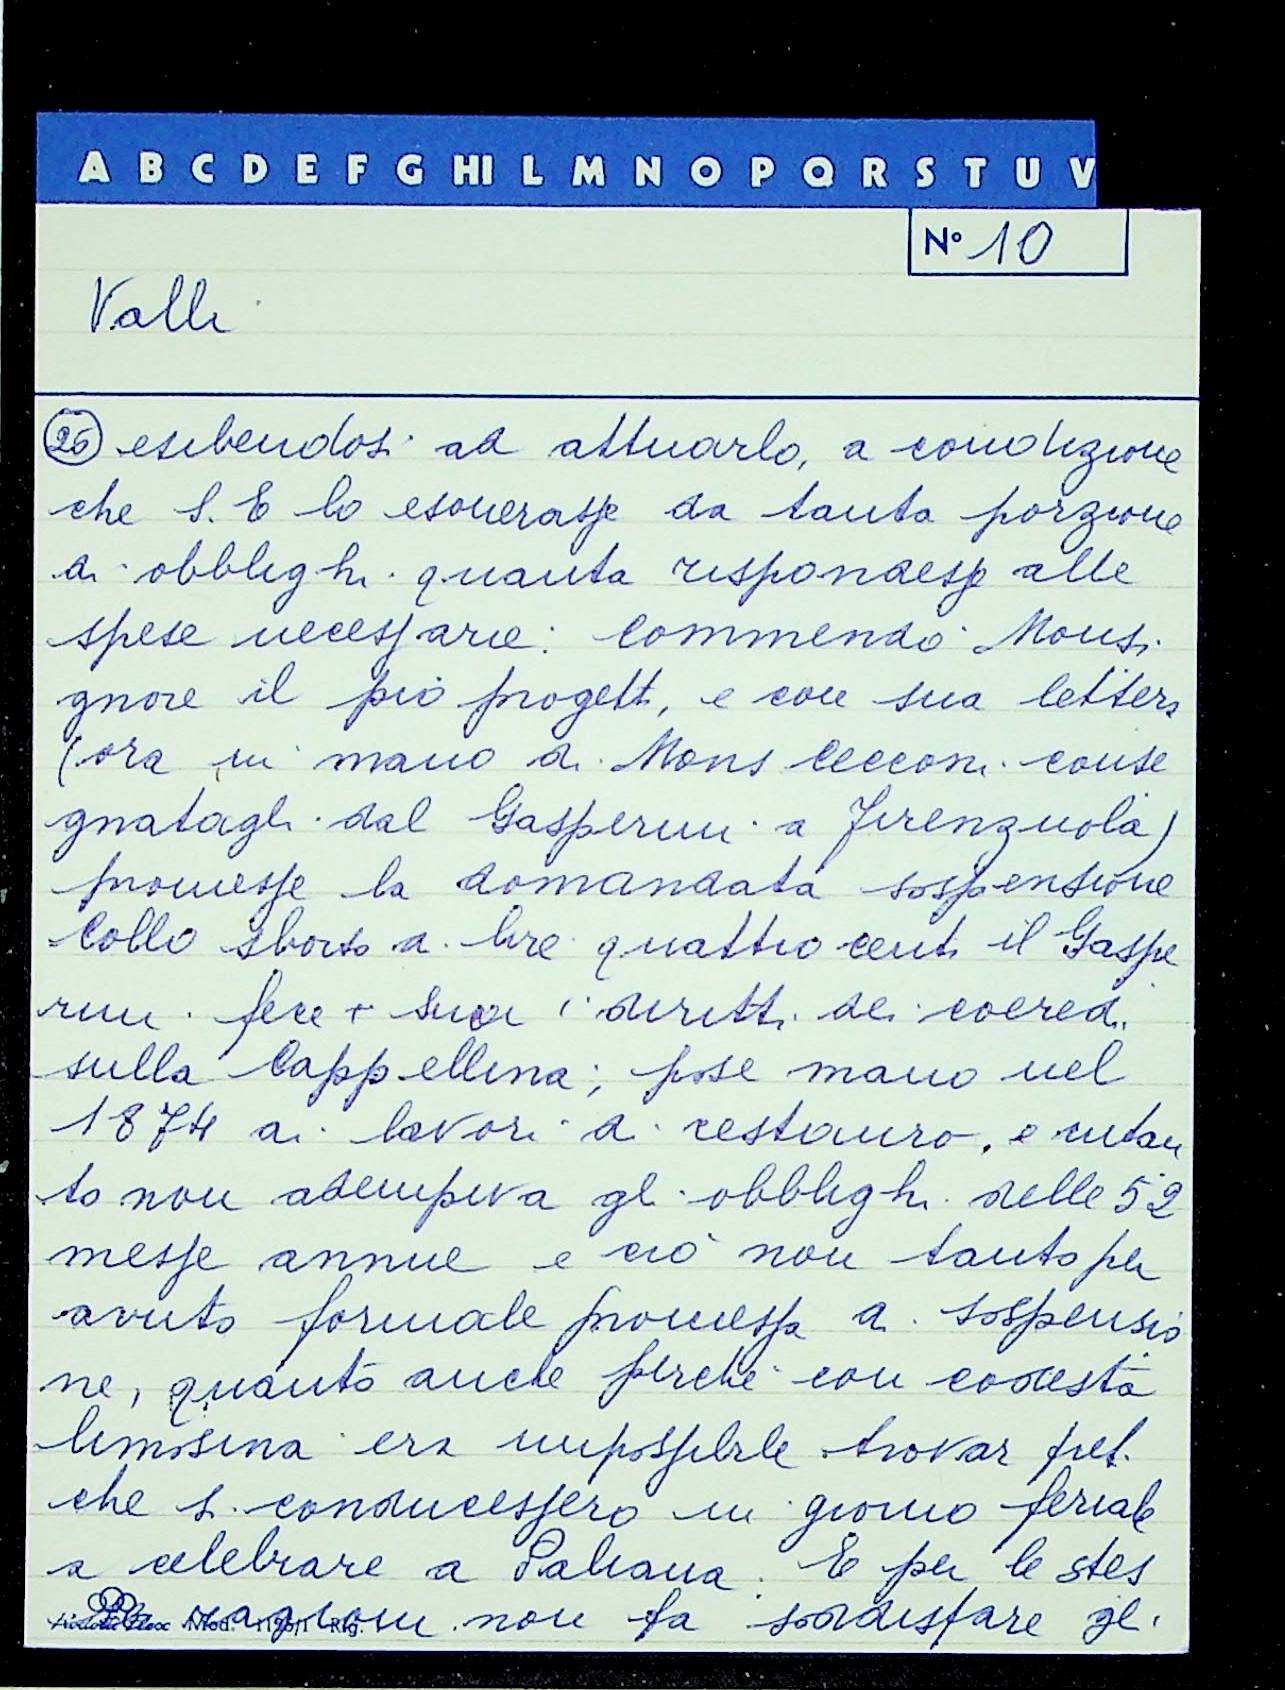 A B C D E F G HI L M N O P Q R S T U V
N° 10
Valli
26 esibendosi ad attuarlo, a condizione
che S. E lo esonerasse da tanta porzione
di obblighi quanta rispondesse alle
spese necessarie: Commendò Monsi
gnore il pio progetto, e con sua lettera
(ora in mano di Mons Cecconi conse
gnatagli dal Gasperini a Firenzuola)
promesse la domandata sospensione
Collo sborso di lire quattro cento il Gaspe
rini fece + suoi i diritti dei coeredi
sulla Cappellina; pose mano nel
1874 ai lavori di restauro, e intan
to non adempiva gli obblighi delle 52
messe annue e ciò non tanto per
avuto formale promessa di sospensio
ne, quanto anche perché con codesta
limosina era impossibile trovar pret.
che si conducessero in giorno feriale
a celebrare a Paliana. E per le stes
ragioni non fa sodisfare gli
Mod. Rig.